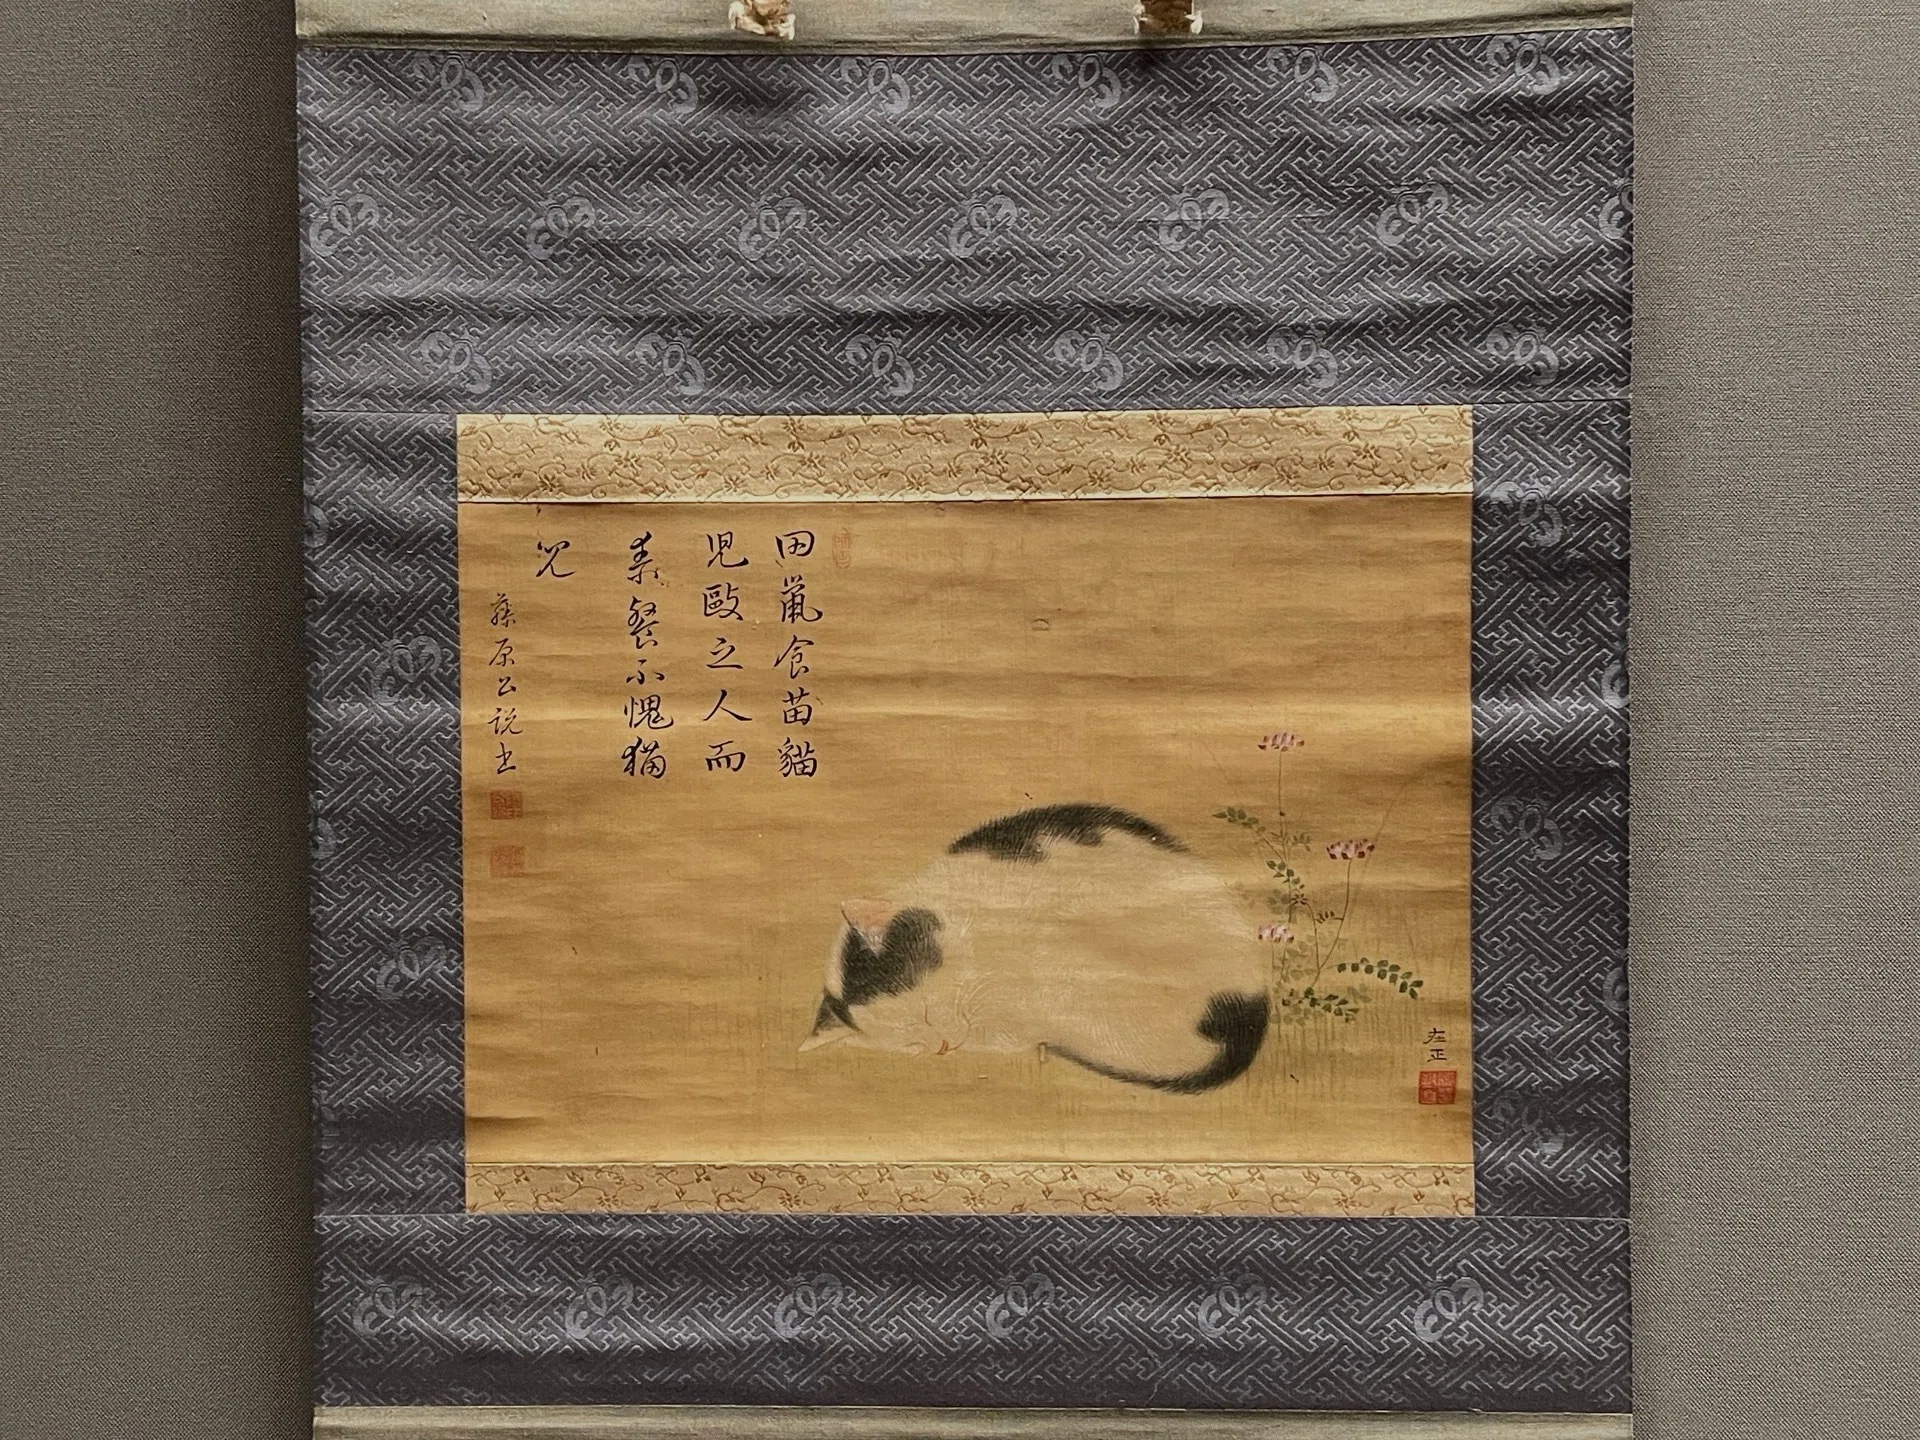 田鼠食苗貓
児毆之人而
素餐不愧猫
児
藤原公説書
在正